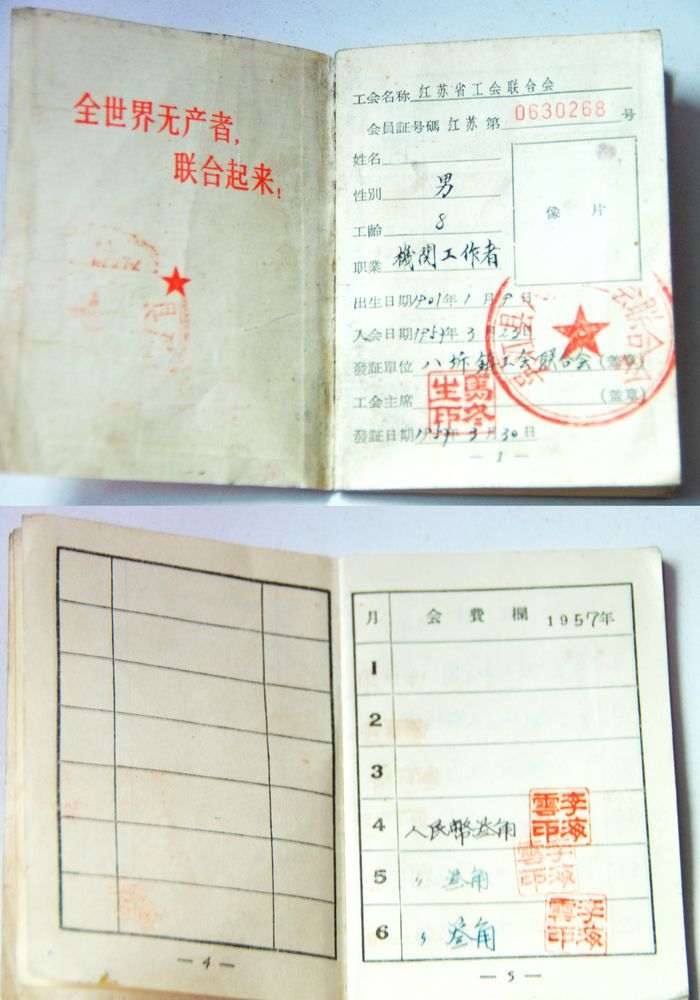 全世界无产者，
联合起来！
工会名称 江苏省工会联合会
会員証号碼 江苏 第 0630268 号
姓名
性別 男
工齡 8
职業 機関工作者
像 片
出生日期 1901年 1 月 9 日
入会日期 1957年 3 月 23 日
發証單位 八坼鎮工会联合会 (盖章)
工会主席 (盖章)
馬冬生印
發証日期 1957年 3 月 30 日
— 1 —
月 会 費 欄 1957年
1
2
3
4 人民幣叁角 李海雲印
5 〃 叁角 李海雲印
6 〃 叁角 李海雲印
— 4 —
— 5 —